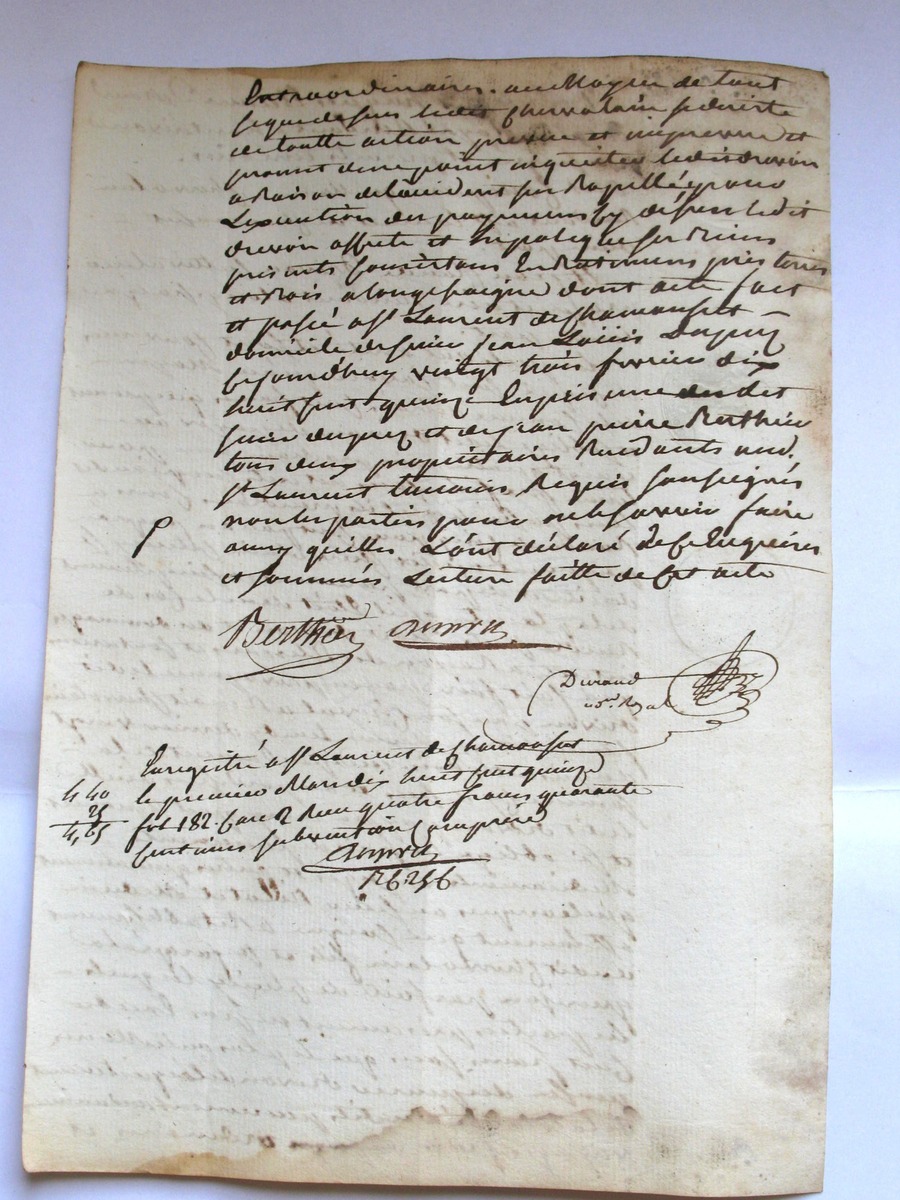 Extraordinaires. au Moyen de tout
se que dessus ledit Chevalain se desiste
de toutte action prevue et imprevue et
promet de ne point inquieter ledit drevon
a Raison de laccident sus Rapellé, pour
Lexecution des payemens cy dessus ledit
drevon affecte et hipoteque ses Biens
presents consistans En Batimens près terres
et Bois a longesaigne dont acte fait
et passé a St Laurent de Chamousset
domicile de sieur Jean Louis Dupuy
cejourdhuy vingt trois fevrier dix
huit cent quinze En presence dudit
sieur dupuy et de Jean pierre Berthier
tous deux propriétaires Residants aud.
St Laurent temoins Requis soussignés
non les parties pour ne le savoir faire
ainsy quelles L'ont déclaré de ce Enquises
et sommées Lecture faitte de cet acte
Berthier
Durand
no.re Royal
Enregistré a St Laurent de Chamousset
le premier Mars dix huit cent quinze
fol 182. Case 2 Reçu quatre francs quarante
centimes subvention Comprise
4 40
25
4,65